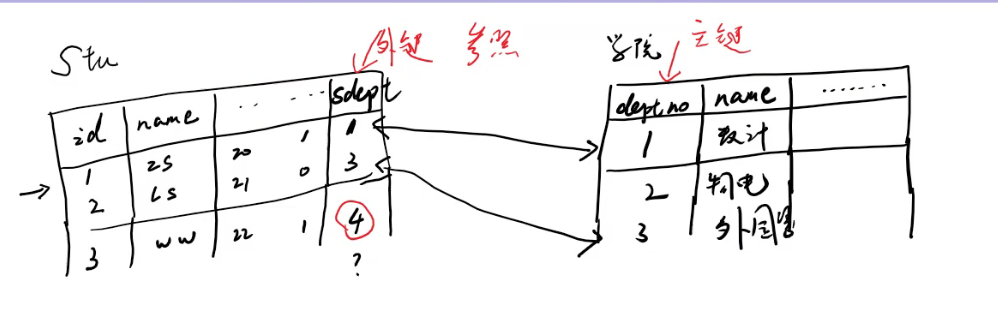 Stu
外键 参照
学院
主键
id name ‥ ‥ sdept
1 zs 20 1 1
2 Ls 21 0 3
3 ww 22 1 4
?
dept no name ……
1 数计
2 物电
3 外国语